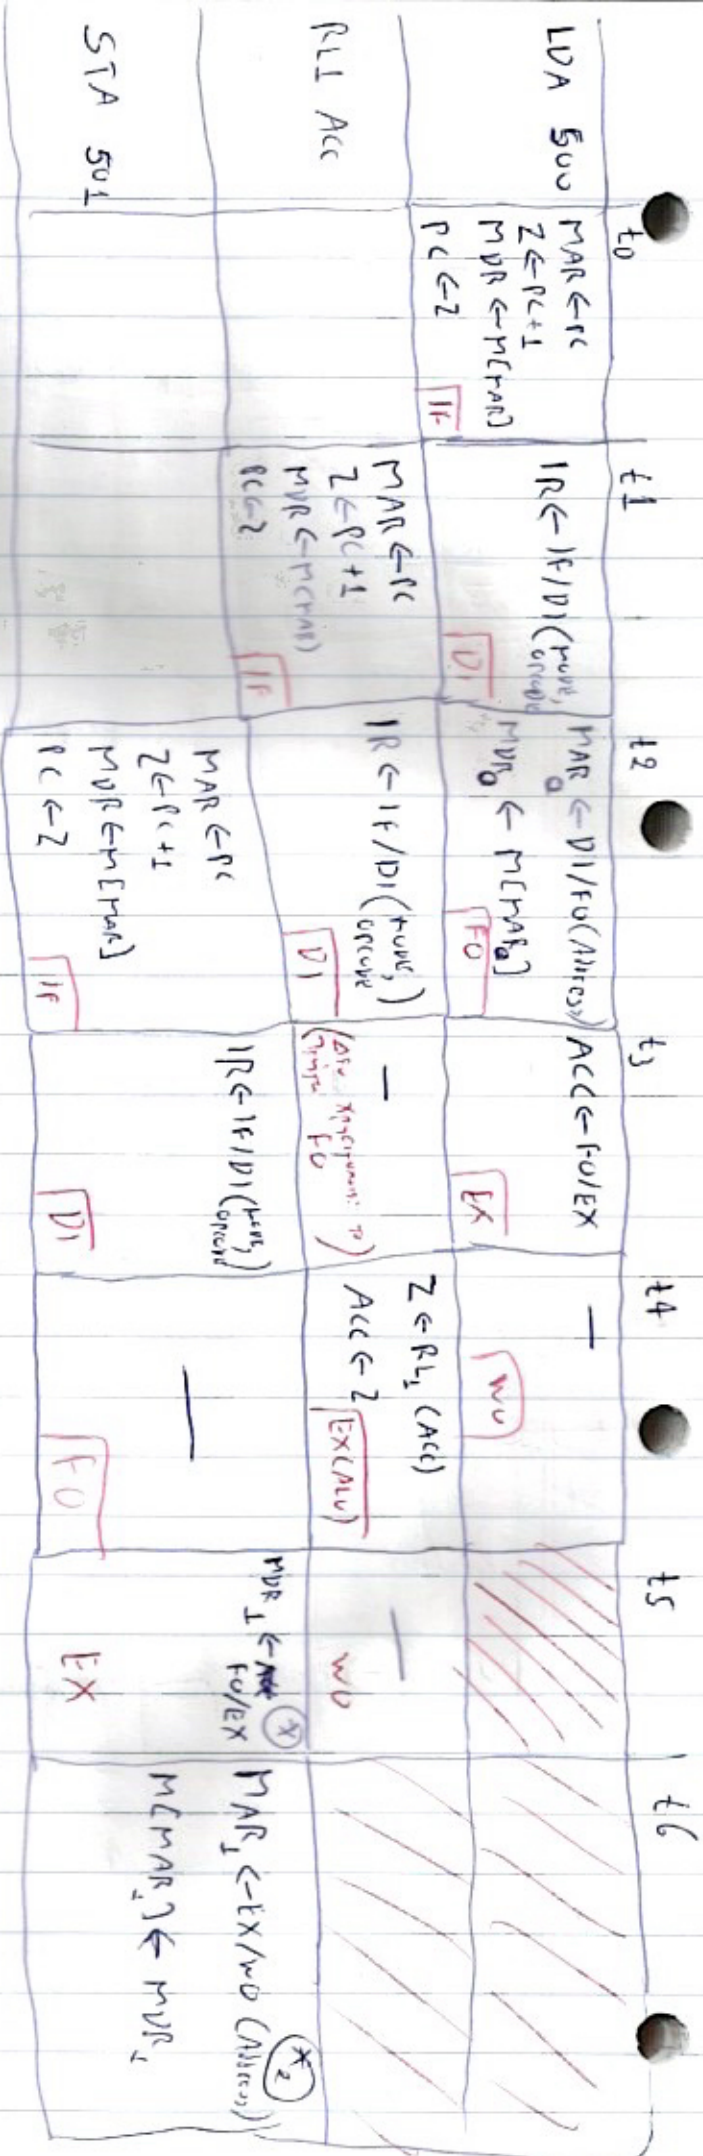 t0
t1
t2
t3
t4
t5
t6
LDA 500
MAR ← PC
Z ← PC+1
MDR ← M[MAR]
PC ← Z
IF
IR ← IF/DI (mode,
opcode
DI
MAR0 ← DI/FO (Address)
MDR0 ← M[MAR0]
FO
ACC ← FO/EX
EX
—
WO
RL1 ACC
MAR ← PC
Z ← PC+1
MDR ← M[MAR)
PC ← Z
IF
IR ← IF/DI (mode,
opcode)
DI
—
(Δεν χρησιμοποιεί το
τμήμα FO)
Z ← RL1 (ACC)
ACC ← Z
EX(ALU)
—
WO
STA 501
MAR ← PC
Z ← PC+1
MDR ← M[MAR]
PC ← Z
IF
IR ← IF/DI (mode,
opcode)
DI
—
FO
MDR1 ←
FO/EX
*
EX
MAR1 ← EX/WO (Address)
*2
M[MAR1] ← MDR1